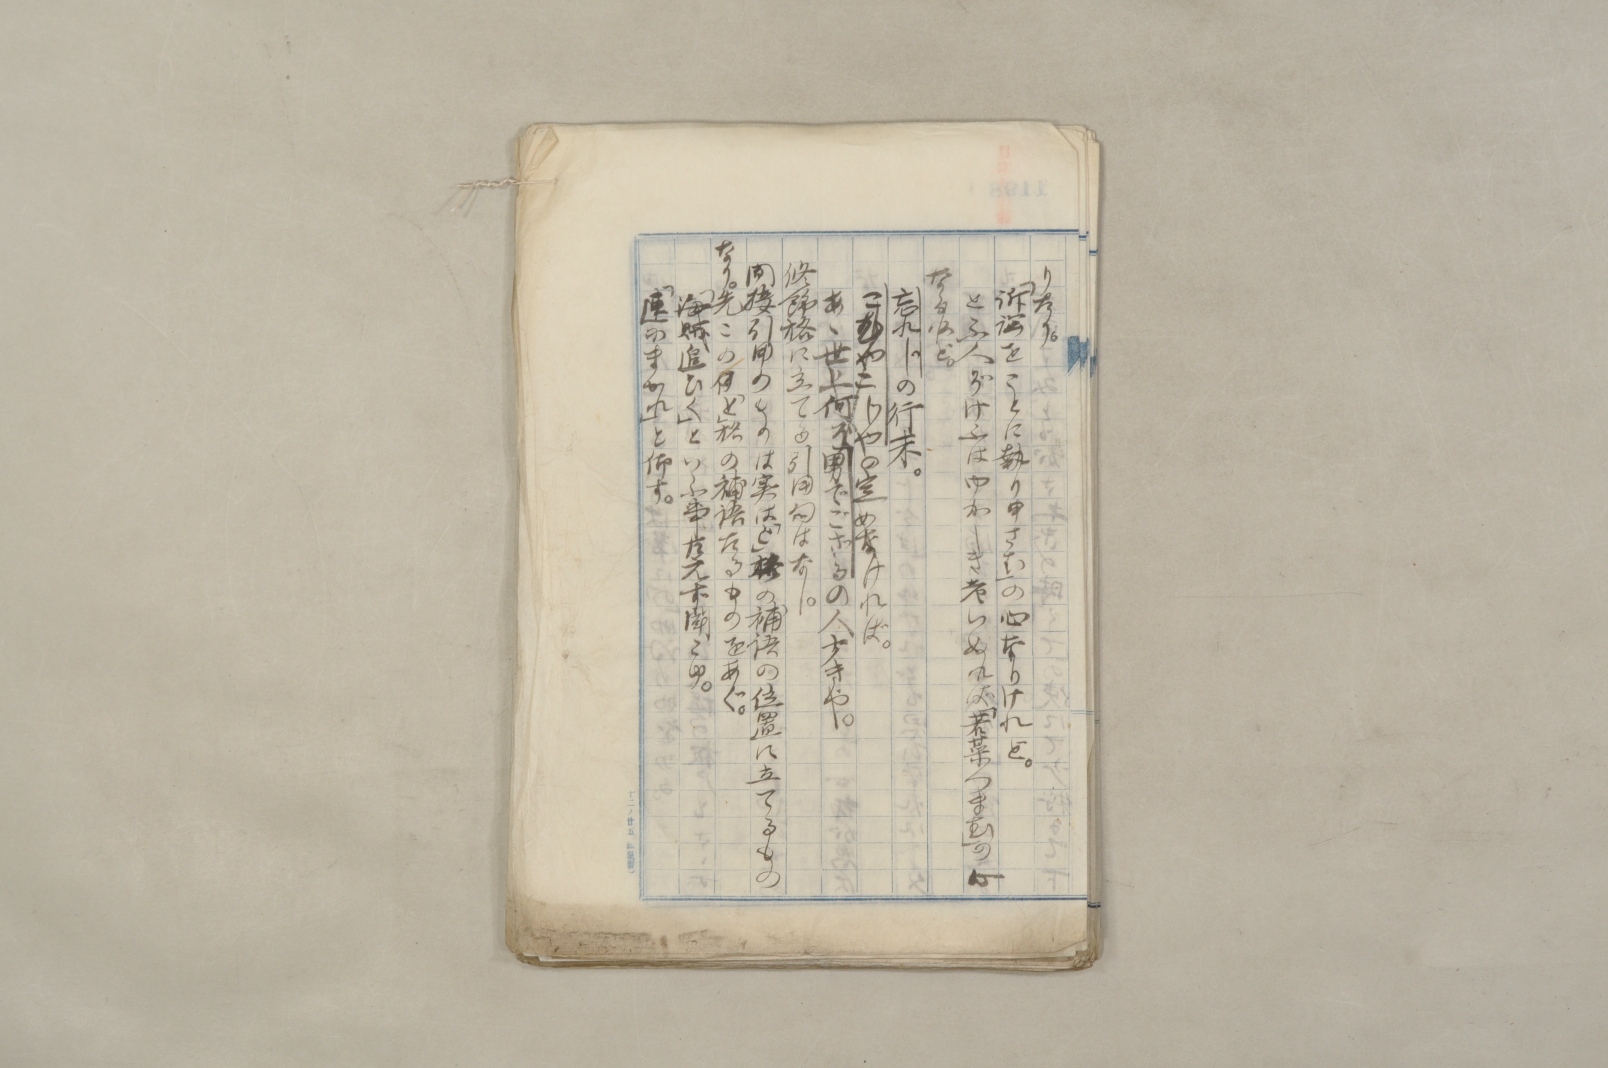 りたり。
「訴訟をことに執り申さむ」の心なりけれど。
とふ人がけふはゆかしき老いぬれば「若菜くまむ」の心
なるなど。
忘れじの行末。
こむやこじやの定めなければ。
あゝ世上何が男でござるの人多きや。
修飾格に立てる引用句はなし。
間接引用のものは実は「ど」格の補語の位置に立てるもの
なり。先この「ど」格の補語たるものをあぐ。
「海賊追ひく」といふ事
「速かまかれ」と仰す。